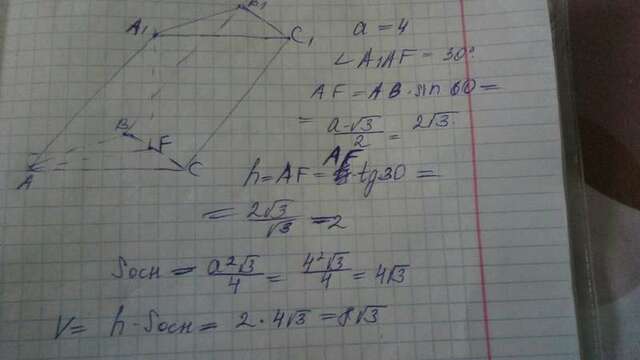 B₁
A₁
C₁
B
F
A
C
a = 4
∠A₁AF = 30°
AF = AB · sin 60 =
= a·√3/2 = 2√3.
h = AF = AF · tg30 =
= 2√3/√3 = 2
Sосн = a²√3/4 = 4²√3/4 = 4√3
V = h · Sосн = 2 · 4√3 = 8√3